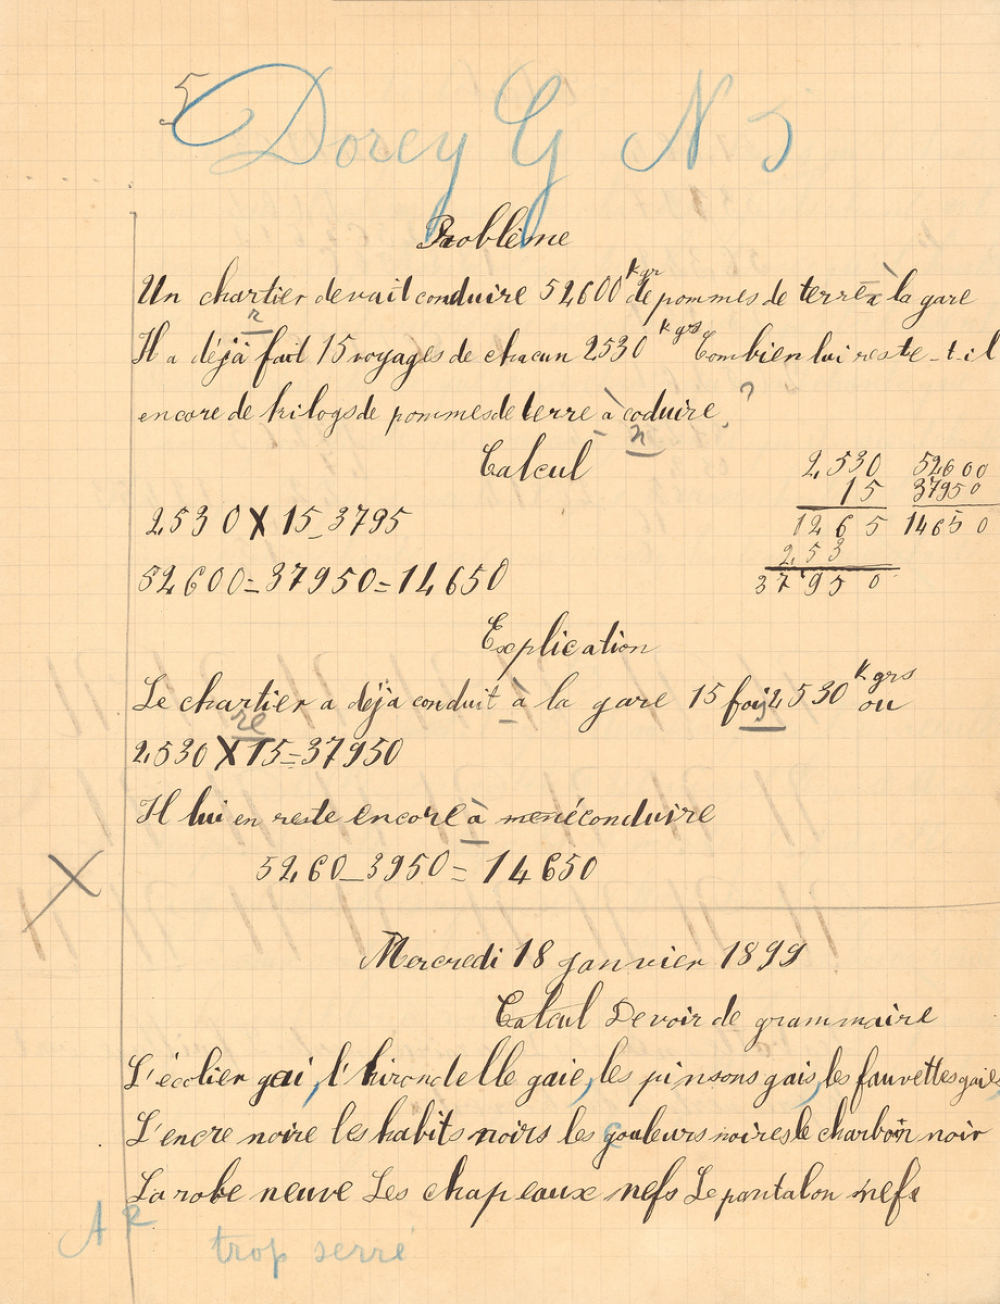 5
Dorey G N 5
Problème
Un chartier devait conduire 52600 kgr de pommes de terre à la gare
r
Il a déjà fait 15 voyages de chacun 2530 kgrs Combien lui reste-t-il
encore de kilogs de pommes de terre à coduire ?
n
Calcul
2530 52600
15 37950
1265 14650
253
37950
2530 X 15_3795
52600=37950=14650
Explication
Le chartier a déjà conduit à la gare 15 fois 2530 kgrs ou
re
2530 X 15=37950
Il lui en reste encore à mené conduire
5260_3950=14650
X
Mercredi 18 janvier 1899
Calcul Devoir de grammaire
L'écolier gai, l'hirondelle gaie, les pinsons gais, les fauvettes gaies
L'encre noire les habits noirs les couleurs noires le charbon noir
La robe neuve Les chapeaux nefs Le pantalon nefs
A R
trop serré